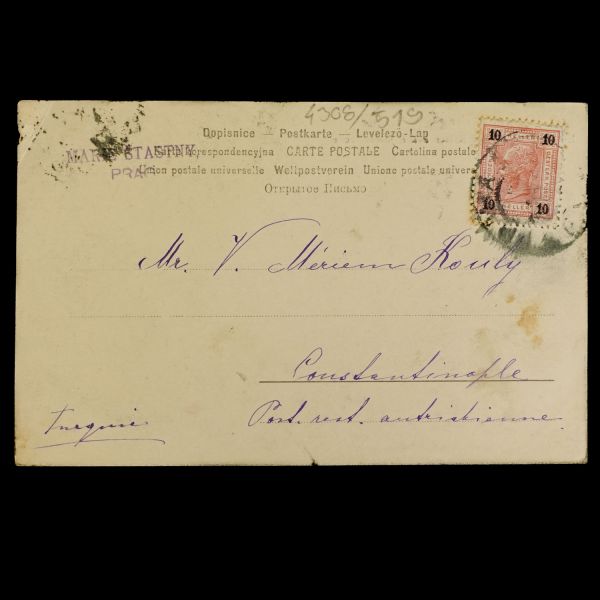 4308/519
Dopisnice — Postkarte — Levelező-Lap
Karta korespondencyjna CARTE POSTALE Cartolina postale
Union postale universelle Weltpostverein Unione postale univers
Открытое Письмо
ŠŤASTNÝ
10 10
10 10
Mr. V. Mériem Kouly
Constantinople
Post. rest. autrichienne
Turquie